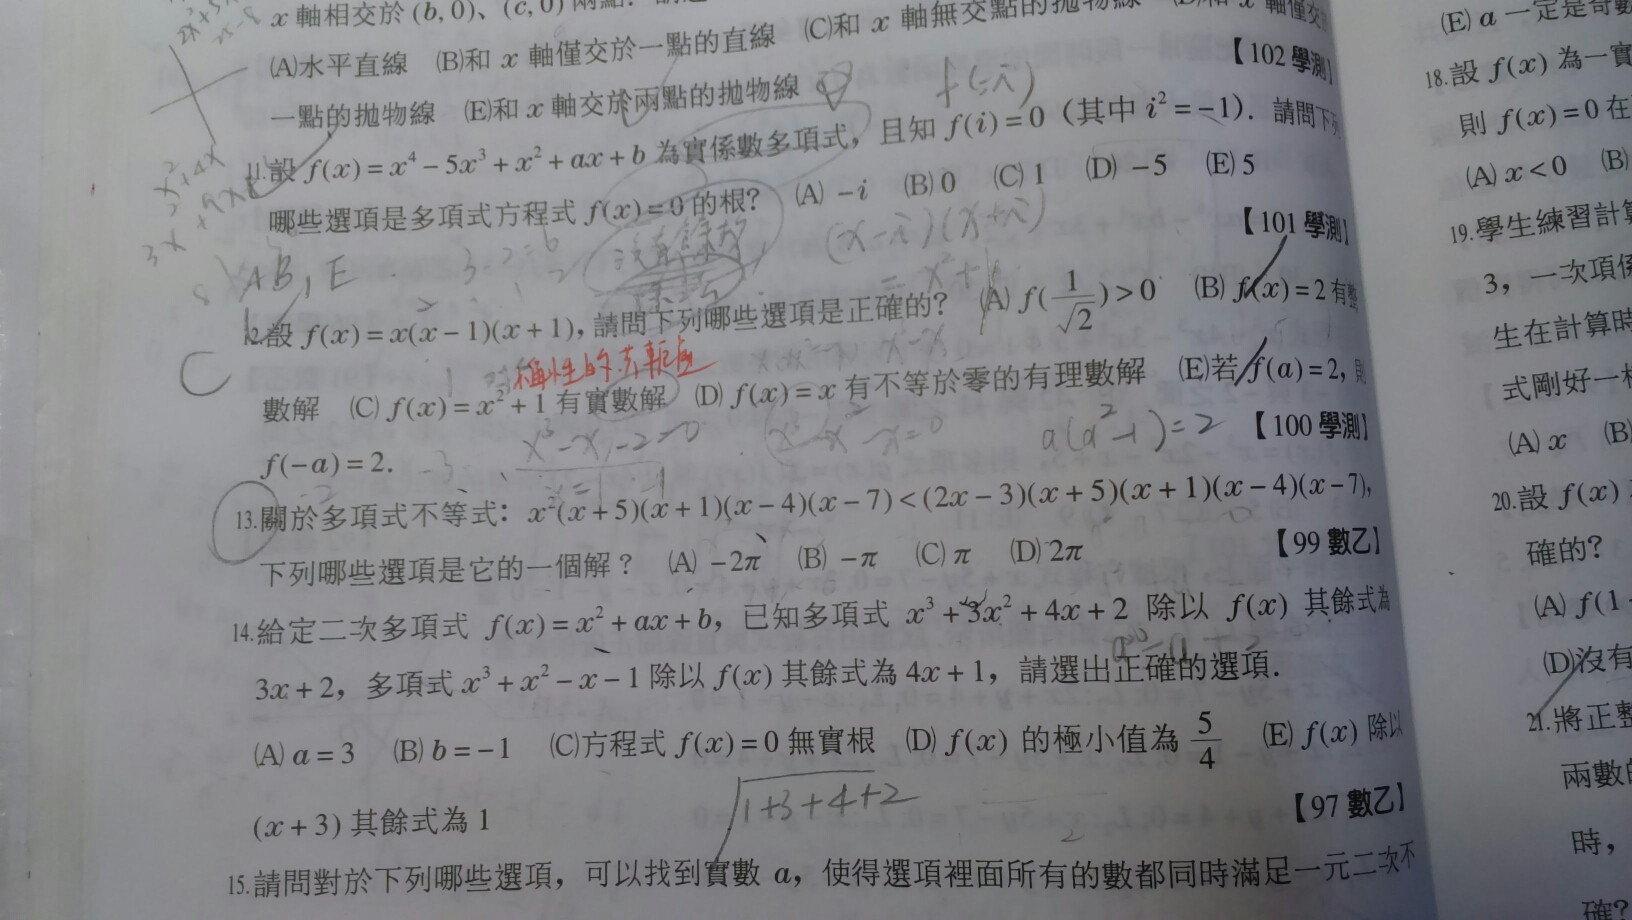 x 軸相交於 (b, 0)、(c, 0) 兩點.
(A)水平直線 (B)和 x 軸僅交於一點的直線 (C)和 x 軸無交點的拋物線 (D)和 x 軸僅交
一點的拋物線 (E)和 x 軸交於兩點的拋物線
【102 學測】
f(-i)
11.設 f(x) = x⁴ − 5x³ + x² + ax + b 為實係數多項式，且知 f(i) = 0（其中 i² = −1）. 請問下列
哪些選項是多項式方程式 f(x) = 0 的根？ (A) −i (B) 0 (C) 1 (D) −5 (E) 5
【101 學測】
AB, E
(x-i)(x+i)
12.設 f(x) = x(x − 1)(x + 1)，請問下列哪些選項是正確的？ (A) f(1/√2) > 0 (B) f(x) = 2 有整
C
數解 (C) f(x) = x² + 1 有實數解 (D) f(x) = x 有不等於零的有理數解 (E)若 f(a) = 2，則
f(−a) = 2.
【100 學測】
x³-x-2=0
a(a²-1)=2
13.關於多項式不等式：x²(x + 5)(x + 1)(x − 4)(x − 7) < (2x − 3)(x + 5)(x + 1)(x − 4)(x − 7)，
下列哪些選項是它的一個解？ (A) −2π (B) −π (C) π (D) 2π
【99 數乙】
14.給定二次多項式 f(x) = x² + ax + b，已知多項式 x³ + 3x² + 4x + 2 除以 f(x) 其餘式為
3x + 2，多項式 x³ + x² − x − 1 除以 f(x) 其餘式為 4x + 1，請選出正確的選項.
(A) a = 3 (B) b = −1 (C)方程式 f(x) = 0 無實根 (D) f(x) 的極小值為 5/4 (E) f(x) 除以
(x + 3) 其餘式為 1
【97 數乙】
1+3+4+2
15.請問對於下列哪些選項，可以找到實數 a，使得選項裡面所有的數都同時滿足一元二次不
(E) a 一定是奇數
18.設 f(x) 為一實
則 f(x) = 0 在
(A) x < 0 (B)
19.學生練習計算
3，一次項係
生在計算時
式剛好一樣
(A) x (B)
20.設 f(x)
確的？
(A) f(1
(D)沒有
21.將正整
兩數的
時，
確？